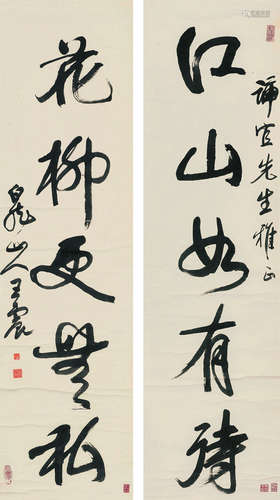 江山如有待
諦宜先生雅正
花柳更無私
白龍山人王震